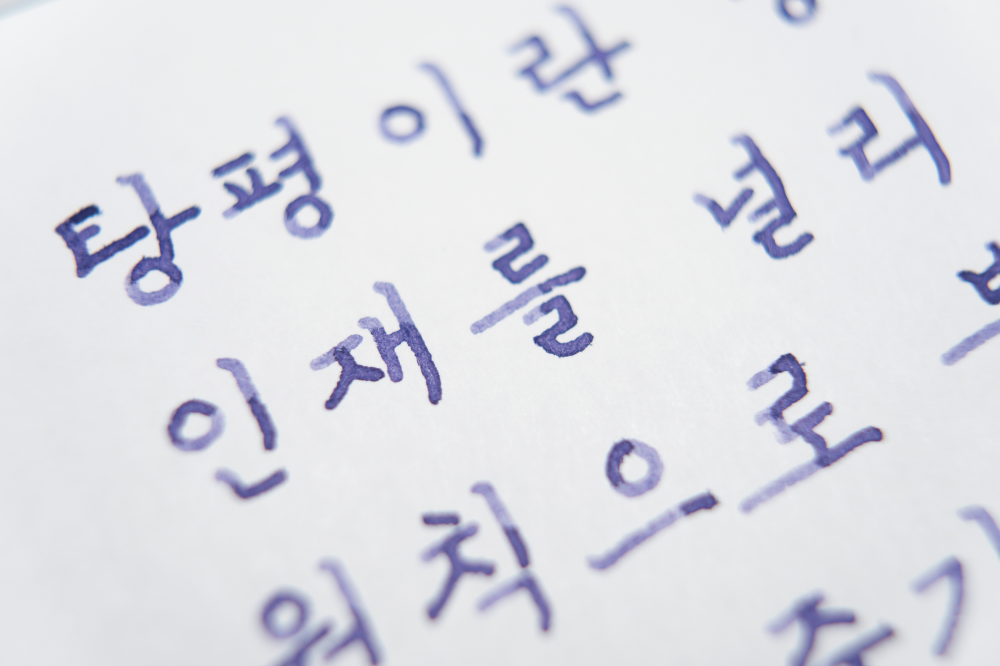 탕평이란
인재를 널리
원칙으로